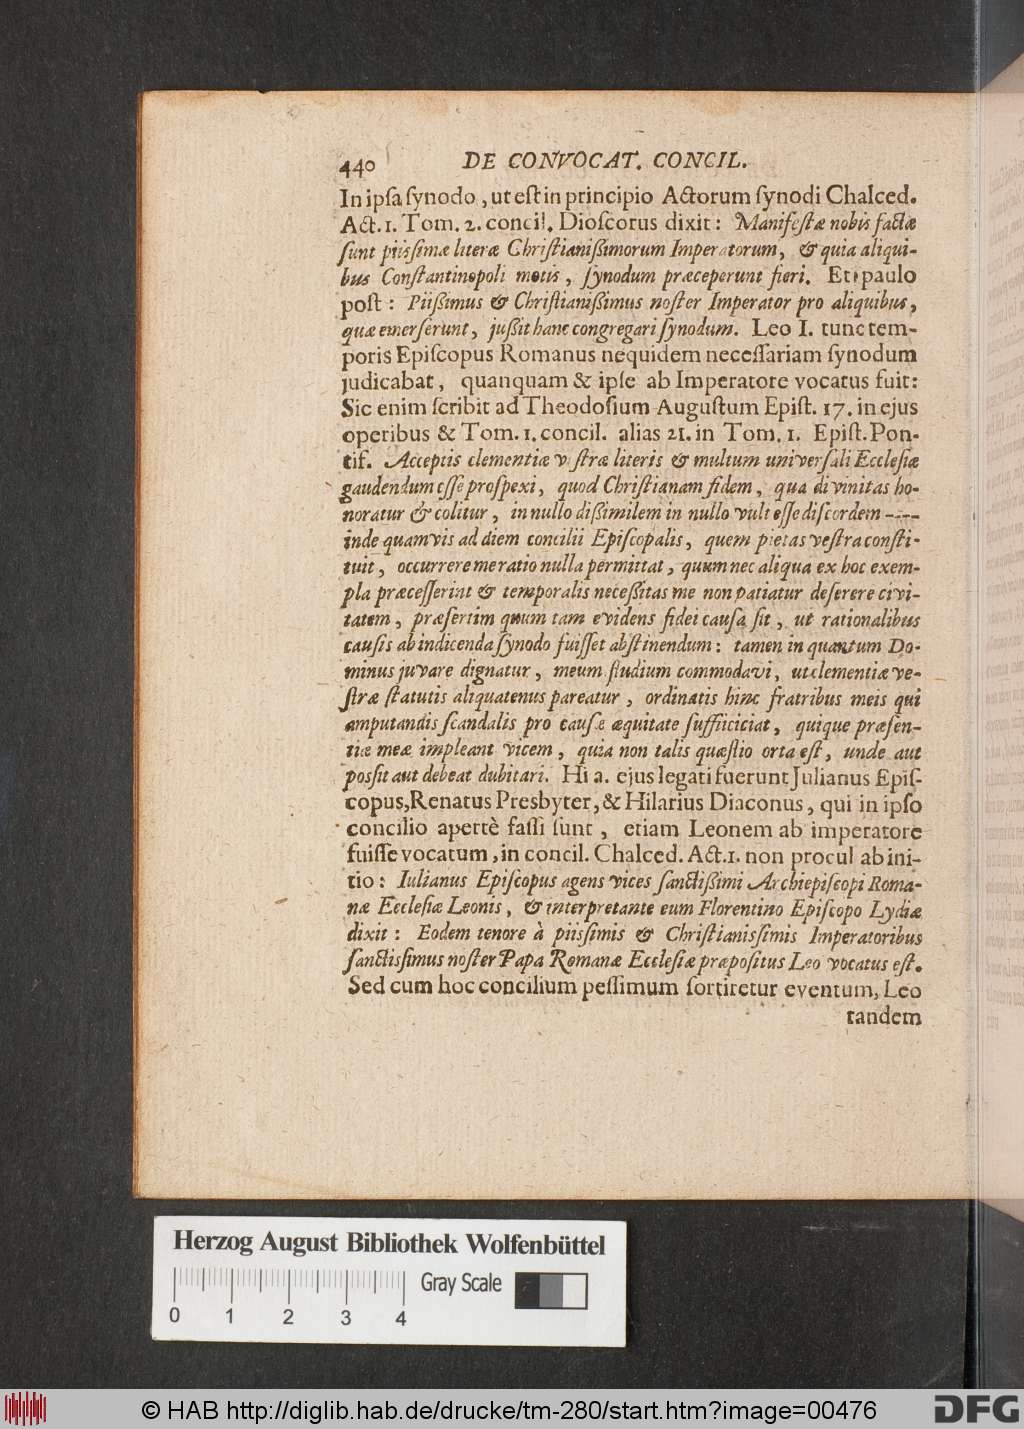 440 DE CONVOCAT. CONCIL.
In ipſa ſynodo, ut eſt in principio Actorum ſynodi Chalced.
Act. 1. Tom. 2. concil. Dioſcorus dixit: Manifeſtæ nobis factæ
ſunt piiſsimæ literæ Chriſtianißimorum Imperatorum, & quia aliqui-
bus Conſtantinopoli motis, ſynodum præceperunt fieri. Et paulo
poſt: Piißimus & Chriſtianißimus noſter Imperator pro aliquibus,
quæ emerſerunt, jußit hanc congregari ſynodum. Leo I. tunc tem-
poris Epiſcopus Romanus nequidem neceſſariam ſynodum
judicabat, quanquam & ipſe ab Imperatore vocatus fuit:
Sic enim ſcribit ad Theodoſium Auguſtum Epiſt. 17. in ejus
operibus & Tom. 1. concil. alias 21. in Tom. 1. Epiſt. Pon-
tif. Acceptis clementiæ vſtræ literis & multum univerſali Eccleſiæ
gaudendum eſſe proſpexi, quod Chriſtianam fidem, qua divinitas ho-
noratur & colitur, in nullo dißimilem in nullo vult eſſe diſcordem ----
inde quamvis ad diem concilii Epiſcopalis, quem pietas veſtra conſti-
tuit, occurrere me ratio nulla permittat, quum nec aliqua ex hoc exem-
pla præceſſerint & temporalis neceßitas me non patiatur deſerere civi-
tatem, præſertim quum tam evidens fidei cauſa ſit, ut rationalibus
cauſis ab indicenda ſynodo fuiſſet abſtinendum: tamen in quantum Do-
minus juvare dignatur, meum ſtudium commodavi, ut clementiæ ve-
ſtræ ſtatutis aliquatenus pareatur, ordinatis hinc fratribus meis qui
amputandis ſcandalis pro cauſæ æquitate ſuffiiciciat, quique præſen-
tiæ meæ impleant vicem, quia non talis quæſtio orta eſt, unde aut
poſsit aut debeat dubitari. Hi a. ejus legati fuerunt Julianus Epiſ-
copus, Renatus Presbyter, & Hilarius Diaconus, qui in ipſo
concilio apertè faſſi ſunt, etiam Leonem ab imperatore
fuiſſe vocatum, in concil. Chalced. Act. 1. non procul ab ini-
tio: Iulianus Epiſcopus agens vices ſanctißimi Archiepiſcopi Roma-
næ Eccleſiæ Leonis, & interpretante eum Florentino Epiſcopo Lydiæ
dixit: Eodem tenore à piiſsimis & Chriſtianiſsimis Imperatoribus
ſanctiſsimus noſter Papa Romanæ Eccleſiæ præpoſitus Leo vocatus eſt.
Sed cum hoc concilium peſſimum ſortiretur eventum, Leo
tandem
Herzog August Bibliothek Wolfenbüttel
Gray Scale
0 1 2 3 4
© HAB http://diglib.hab.de/drucke/tm-280/start.htm?image=00476
DFG